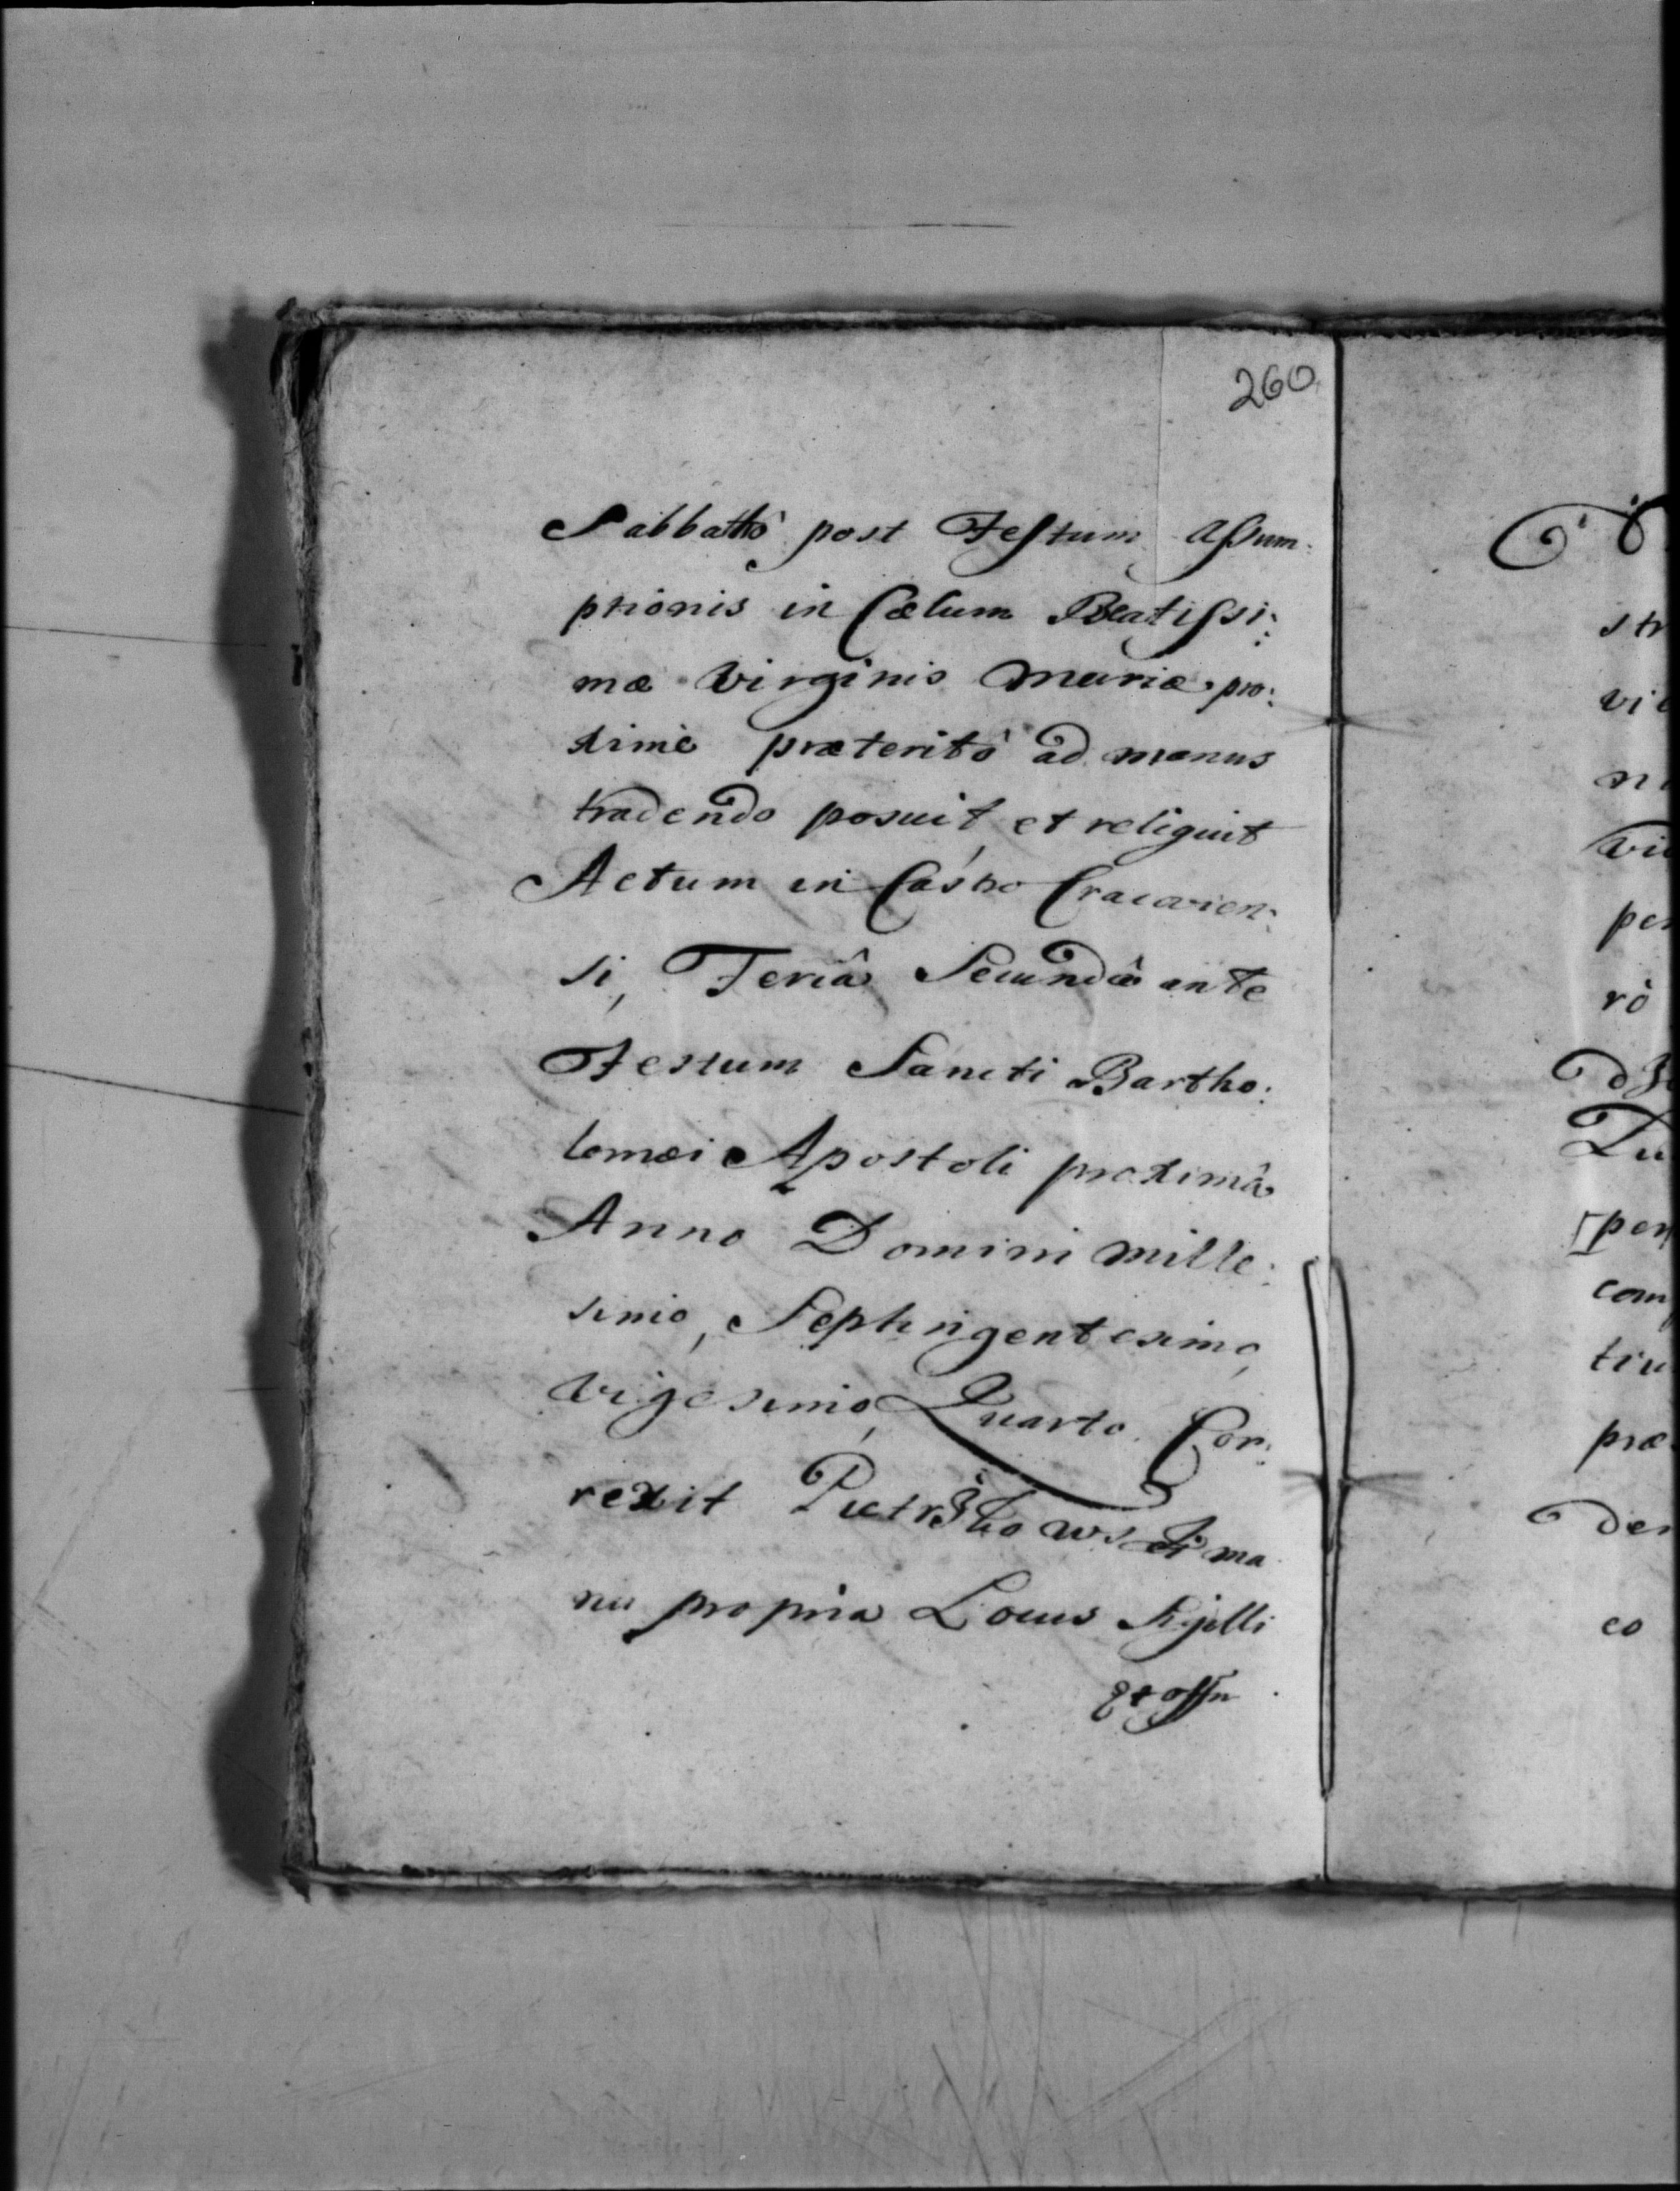 260
Sabbathô post Festum Assum:
ptionis in Cœlum Beatissi:
mæ Virginis Mariæ pro:
ximè præteritô ad manus
tradendo posuit, et reliquit
Actum in Castro Cracovien:
si, Feriâ Secundâ ante
Festum Sancti Bartho:
lomæi Apostoli proximâ
Anno Domini Mille:
simo, Septingentesimo,
Vigesimo, Quarto. Cor:
rexit Pietrzkowski ma
nu propria Locus Sigilli
Ex offn
str
vi
ni
pe
rò
Lu
per
com
præ
der
eo